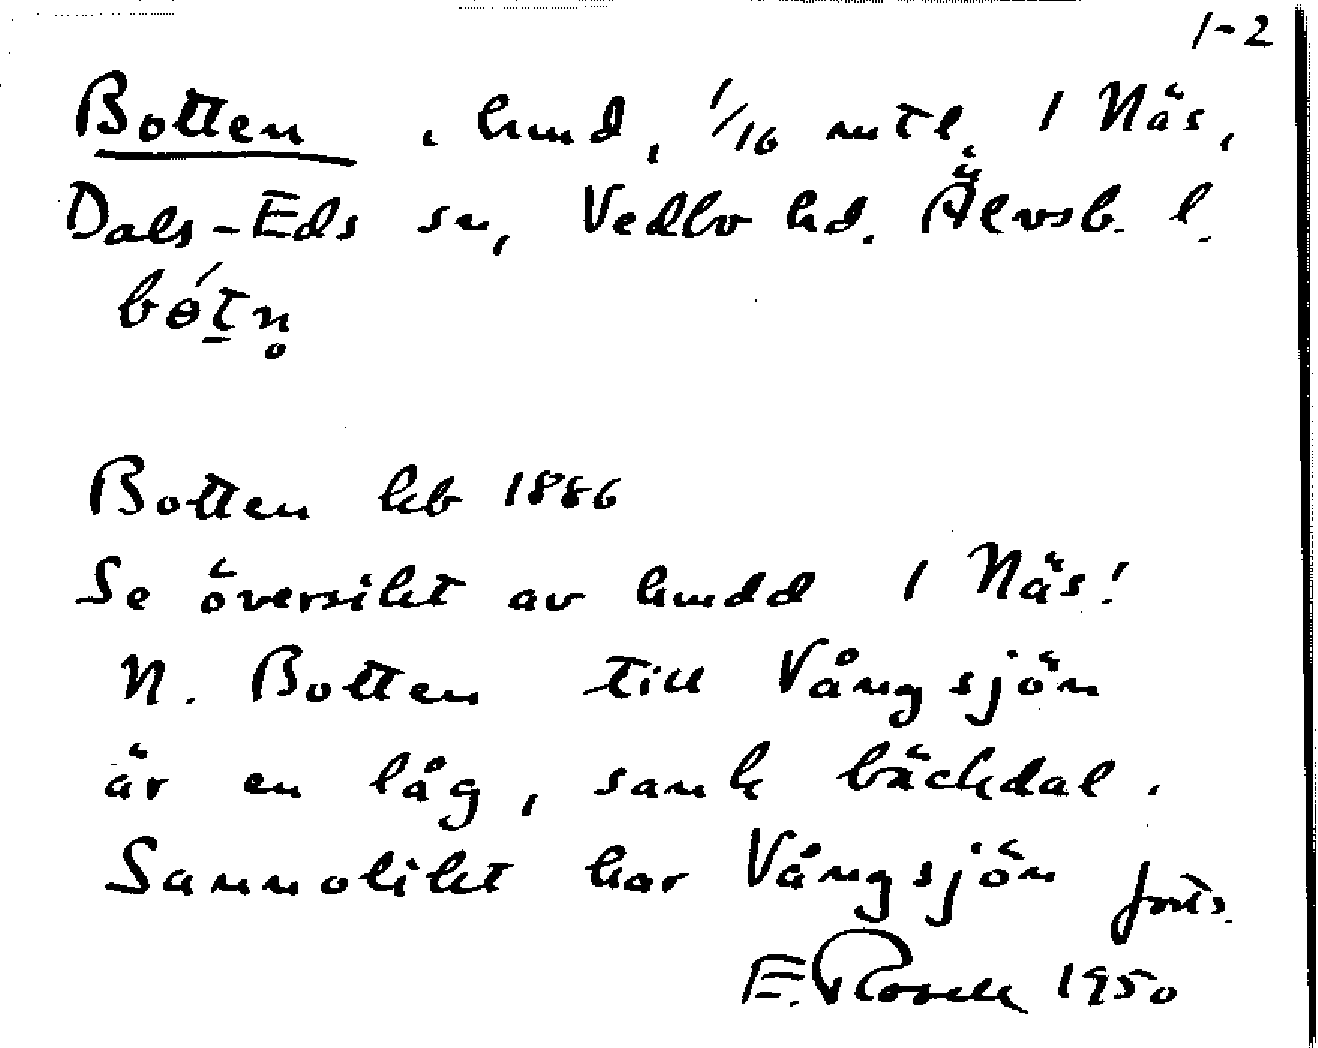 1-2
Botten, hmd, 1/16 mtl, 1 Näs,
Dals-Eds sn, Vedbo hd. Älvsb. l.
bótn̥
Botten hb 1886
Se översikt av hmdd 1 Näs!
N. Botten till Vångsjön
är en låg, sank bäckdal.
Sannolikt har Vångsjön forts.
E. Rosell 1950